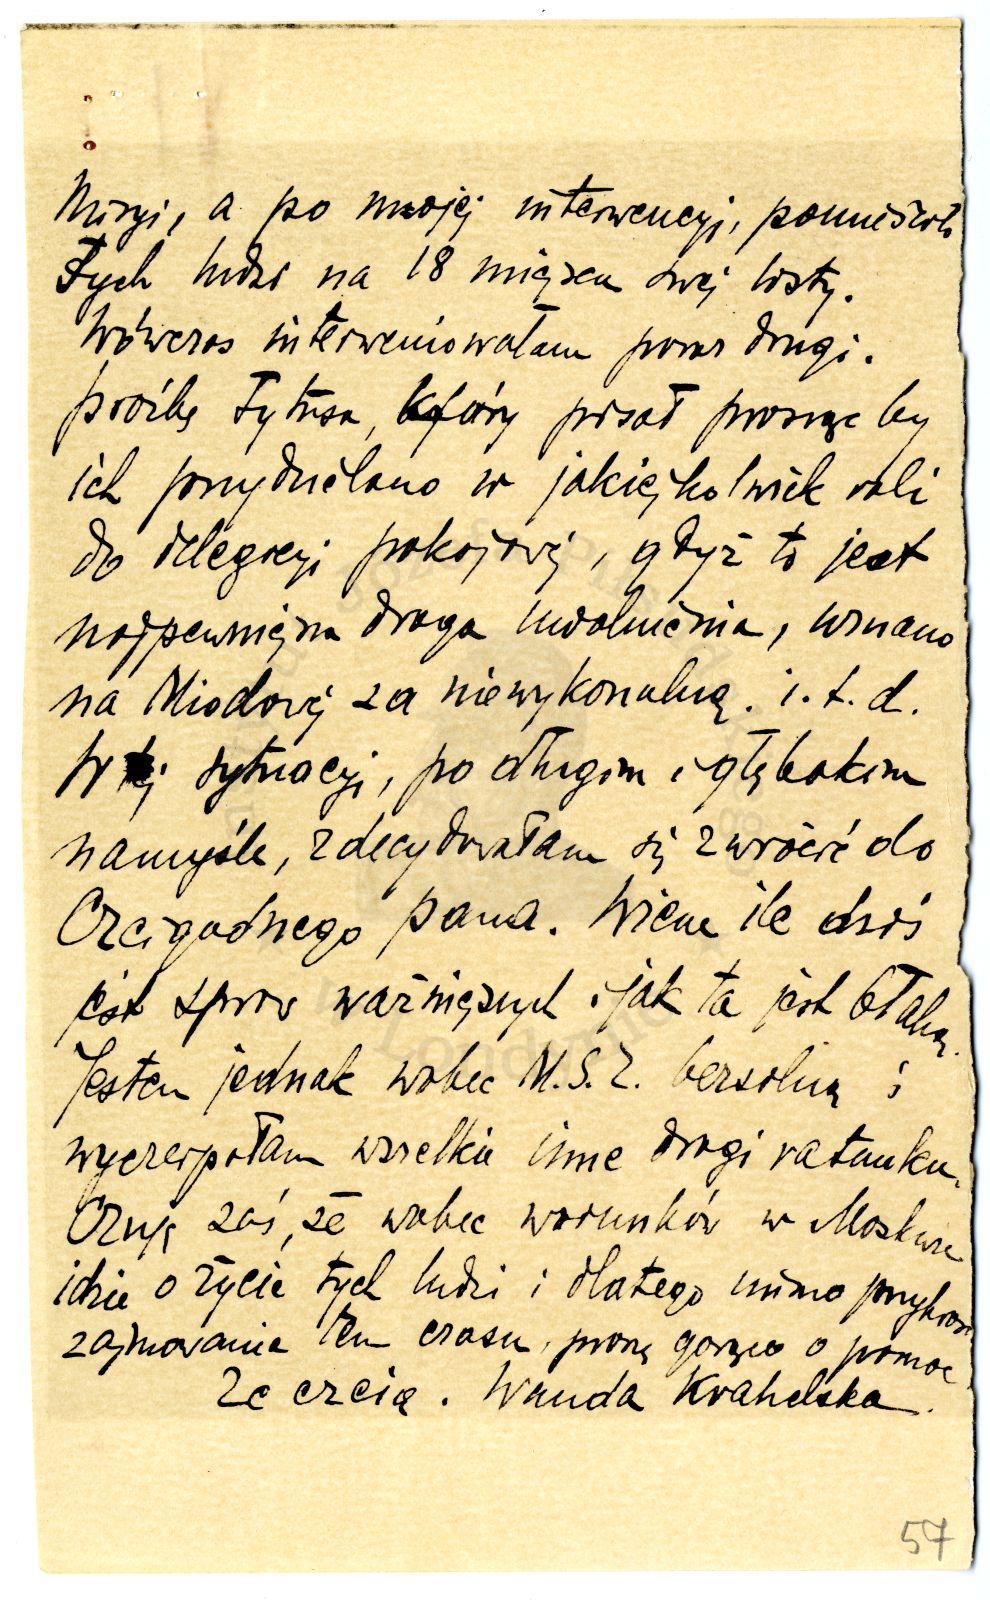 Misyi, a po mojej interwencyi, pomieścił
Tych ludzi na 18 miejscu swej listy.
Wówczas interweniowałam poraz drugi.
prośbę Tytusa, który pisał prosząc by
ich przydzielano w jakiejkolwiek roli
do delegacyi pokojowej, gdyż to jest
najpewniejsza droga uwolnienia, uznano
na Miodowej za niewykonalną. i.t.d.
W tej sytuacyi, po długim i głębokim
namyśle, zdecydowałam się zwrócić do
Czcigodnego pana. Wiem ile dziś
jest spraw ważniejszych i jak ta jest błahą.
Jestem jednak wobec M.S.Z. bezsilną i
wyczerpałam wszelkie inne drogi ratunku.
Czuję zaś, że wobec warunków w Moskwie
idzie o życie tych ludzi i dlatego mimo
zajmowania tem czasu, proszę gorąco o pomoc
Ze czcią. Wanda Krahelska.
57